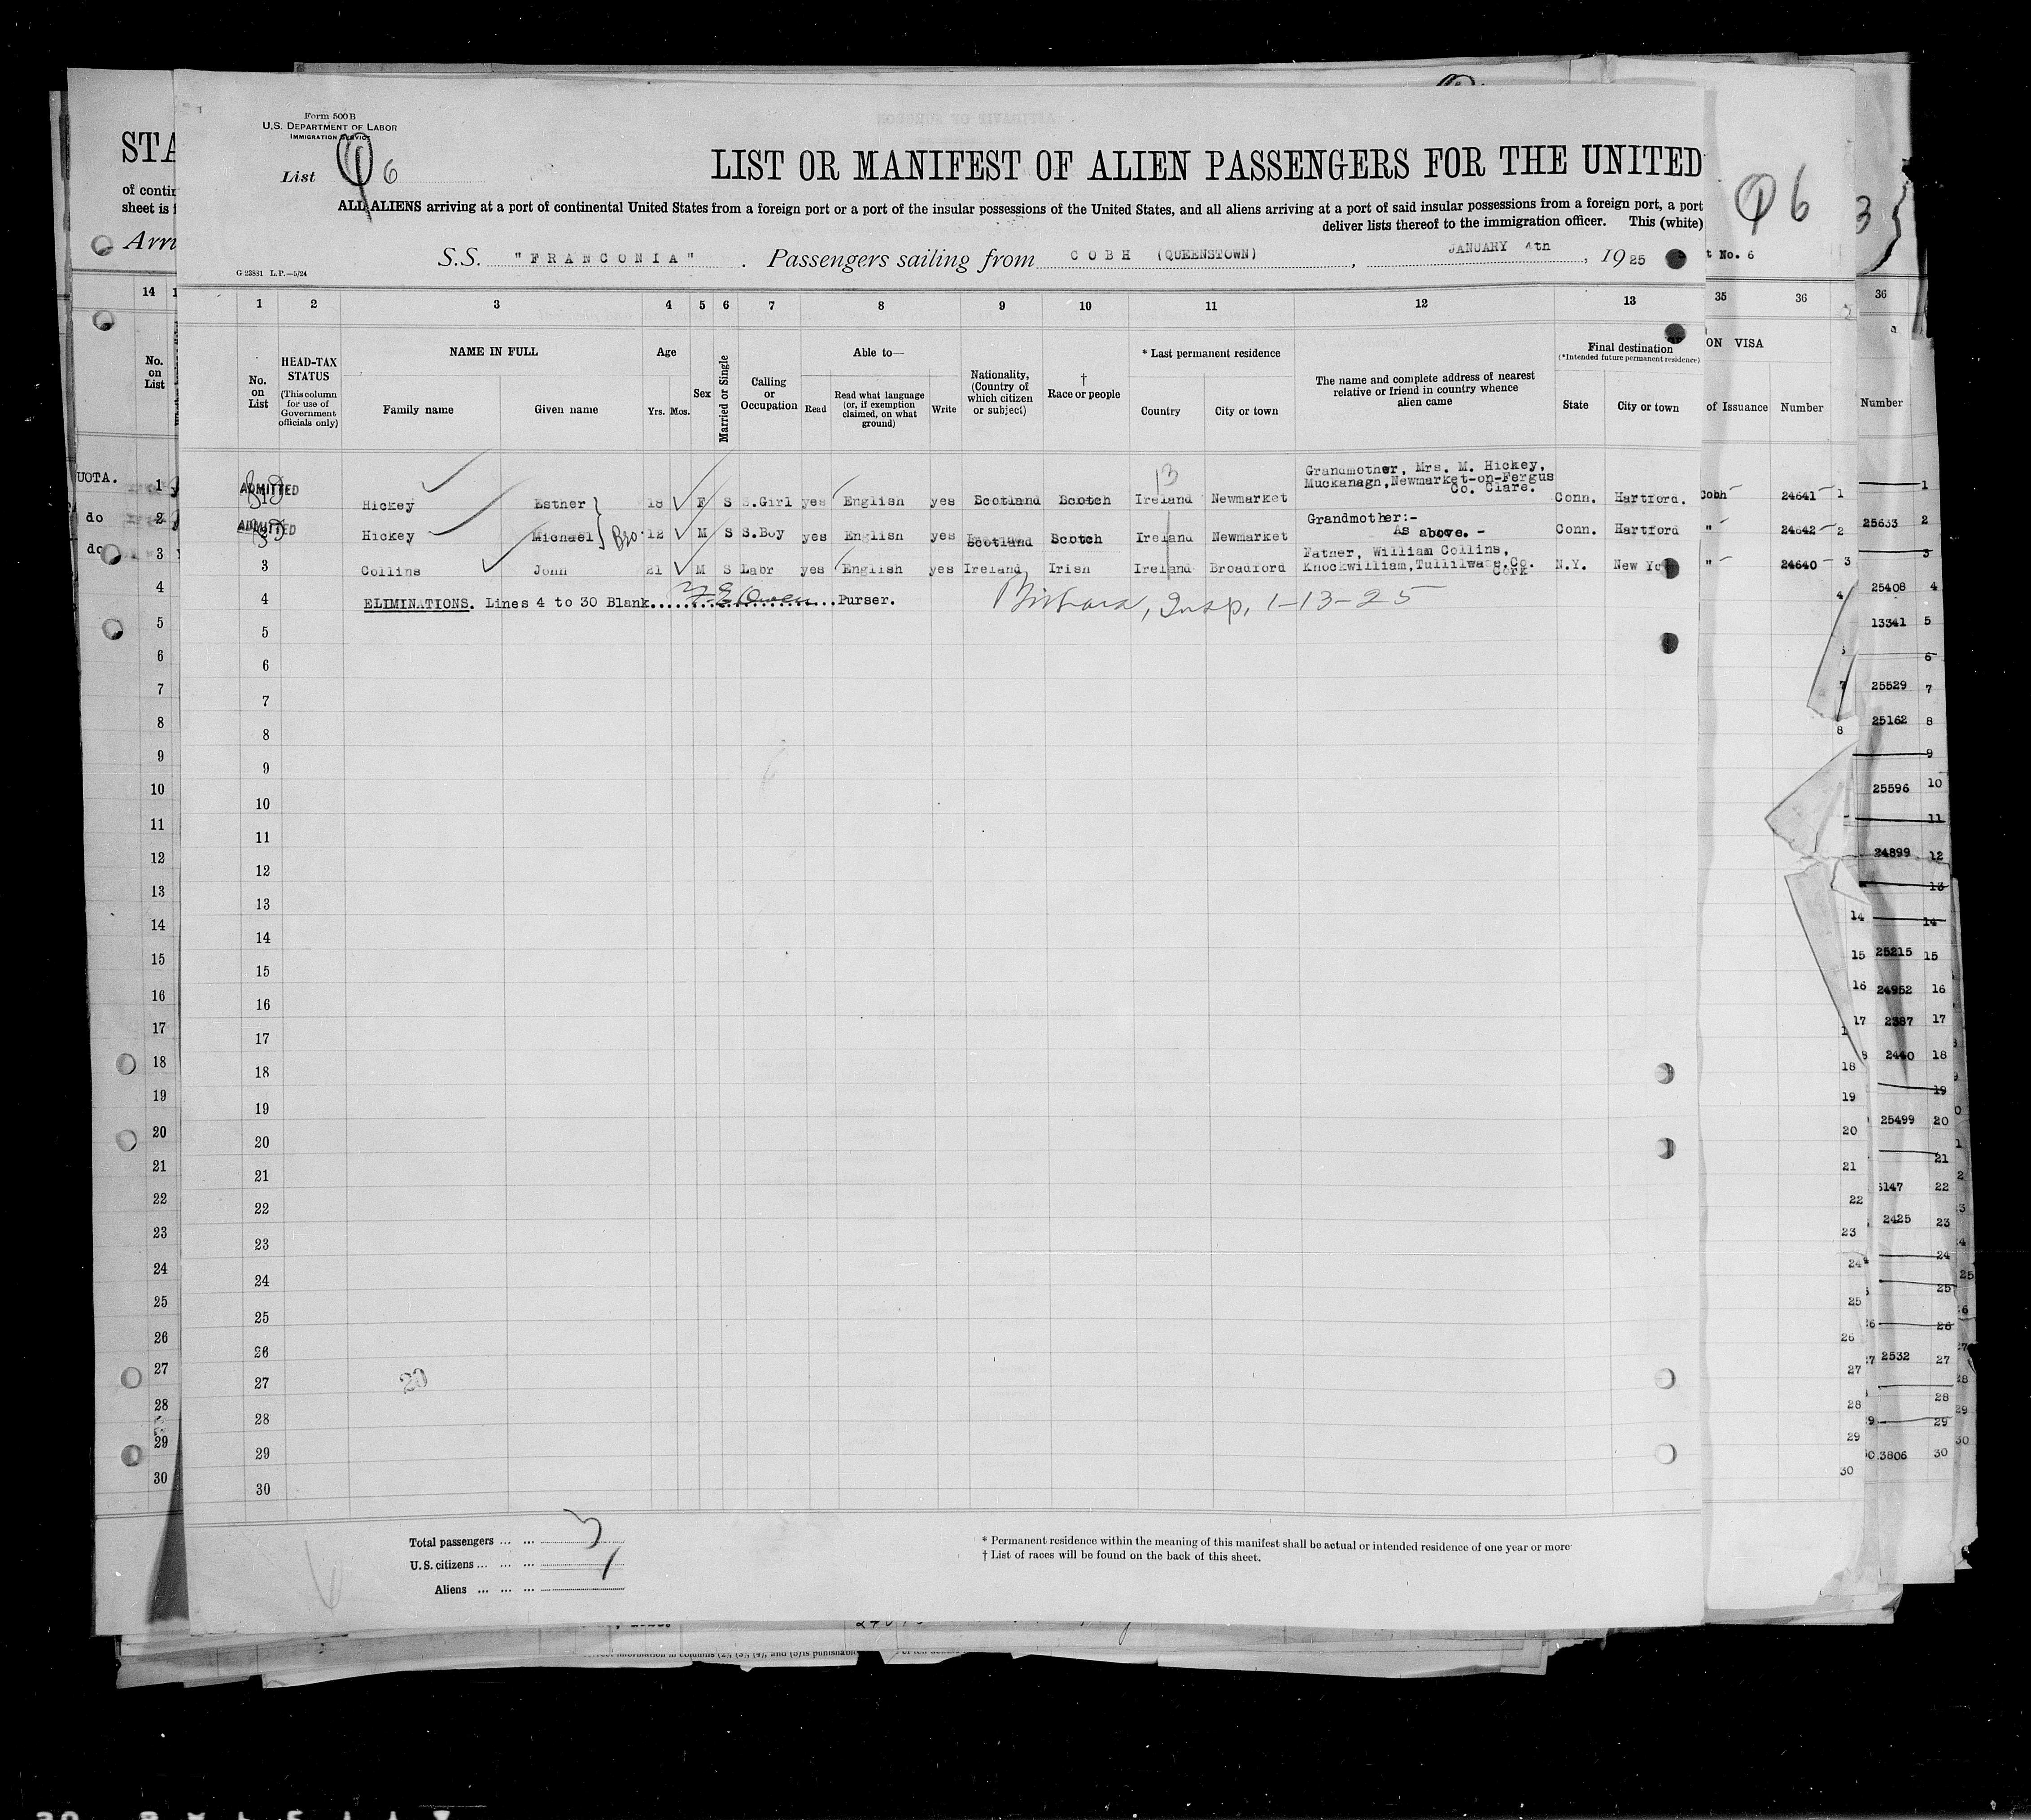 Form 500 B
U.S. DEPARTMENT OF LABOR
IMMIGRATION SERVICE
List 6
LIST OR MANIFEST OF ALIEN PASSENGERS FOR THE UNITED
ALL ALIENS arriving at a port of continental United States from a foreign port or a port of the insular possessions of the United States, and all aliens arriving at a port of said insular possessions from a foreign port, a port
deliver lists thereof to the immigration officer. This (white)
S.S. "FRANCONIA". Passengers sailing from COBH (QUEENSTOWN), JANUARY 4th, 1925
G 23881 L.P.—5/24
1 2 3 4 5 6 7 8 9 10 11 12 13
No. on List
HEAD-TAX STATUS (This column for use of Government officials only)
NAME IN FULL
Family name Given name
Age
Yrs. Mos.
Sex
Married or Single
Calling or Occupation
Able to—
Read
Read what language (or, if exemption claimed, on what ground)
Write
Nationality, (Country of which citizen or subject)
† Race or people
* Last permanent residence
Country City or town
The name and complete address of nearest relative or friend in country whence alien came
Final destination
(*Intended future permanent residence)
State City or town
ADMITTED Hickey Esther 18 F S S.Girl yes English yes Scotland Scotch Ireland Newmarket Grandmother, Mrs. M. Hickey, Muckanagh, Newmarket-on-Fergus Co. Clare. Conn. Hartford.
ADMITTED Hickey Michael Bro. 12 M S S.Boy yes English yes Scotland Scotch Ireland Newmarket Grandmother:- As above. - Conn. Hartford
3 Collins John 21 M S Labr yes English yes Ireland Irish Ireland Broadford Father, William Collins, Knockwilliam, Co. Cork N.Y. New
4 ELIMINATIONS. Lines 4 to 30 Blank. Purser. Insp, 1-13-25
5
6
7
8
9
10
11
12
13
14
15
16
17
18
19
20
21
22
23
24
25
26
27 20
28
29
30
Total passengers ... ... 3
U.S. citizens ... ...
Aliens ... ... ...
* Permanent residence within the meaning of this manifest shall be actual or intended residence of one year or more
† List of races will be found on the back of this sheet.
STA
of contin
sheet is
Arri
14
No. on List
UOTA. 1
do 2
do 3
4
5
6
7
8
9
10
11
12
13
14
15
16
17
18
19
20
21
22
23
24
25
26
27
28
29
30
6
t No. 6
35 36
ON VISA
of Issuance Number
Cobh 24641 1
" 24642 2
" 24640 3
36
Number
1
25633 2
3
25408 4
13341 5
6
25529 7
25162 8
9
25596 10
11
24899 12
13
14
25215 15
24952 16
2387 17
2440 18
19
25499 20
21
5147 22
2425 23
24
25
26
2532 27
28
29
3806 30